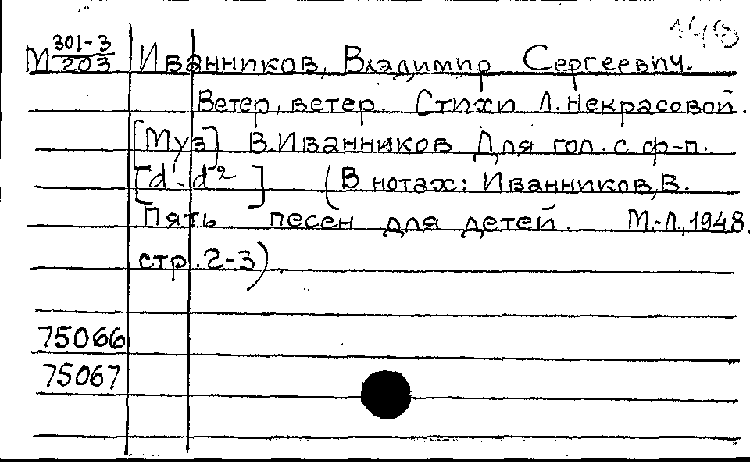 148
М 301-3/203 Иванников, Владимир Сергеевич.
Ветер, ветер. Стихи Л. Некрасовой.
[Муз] В. Иванников Для гол. с ф-п.
[d'-d²] (В нотах: Иванников, В.
Пять песен для детей. М.-Л., 1948.
стр. 2-3).
75066
75067